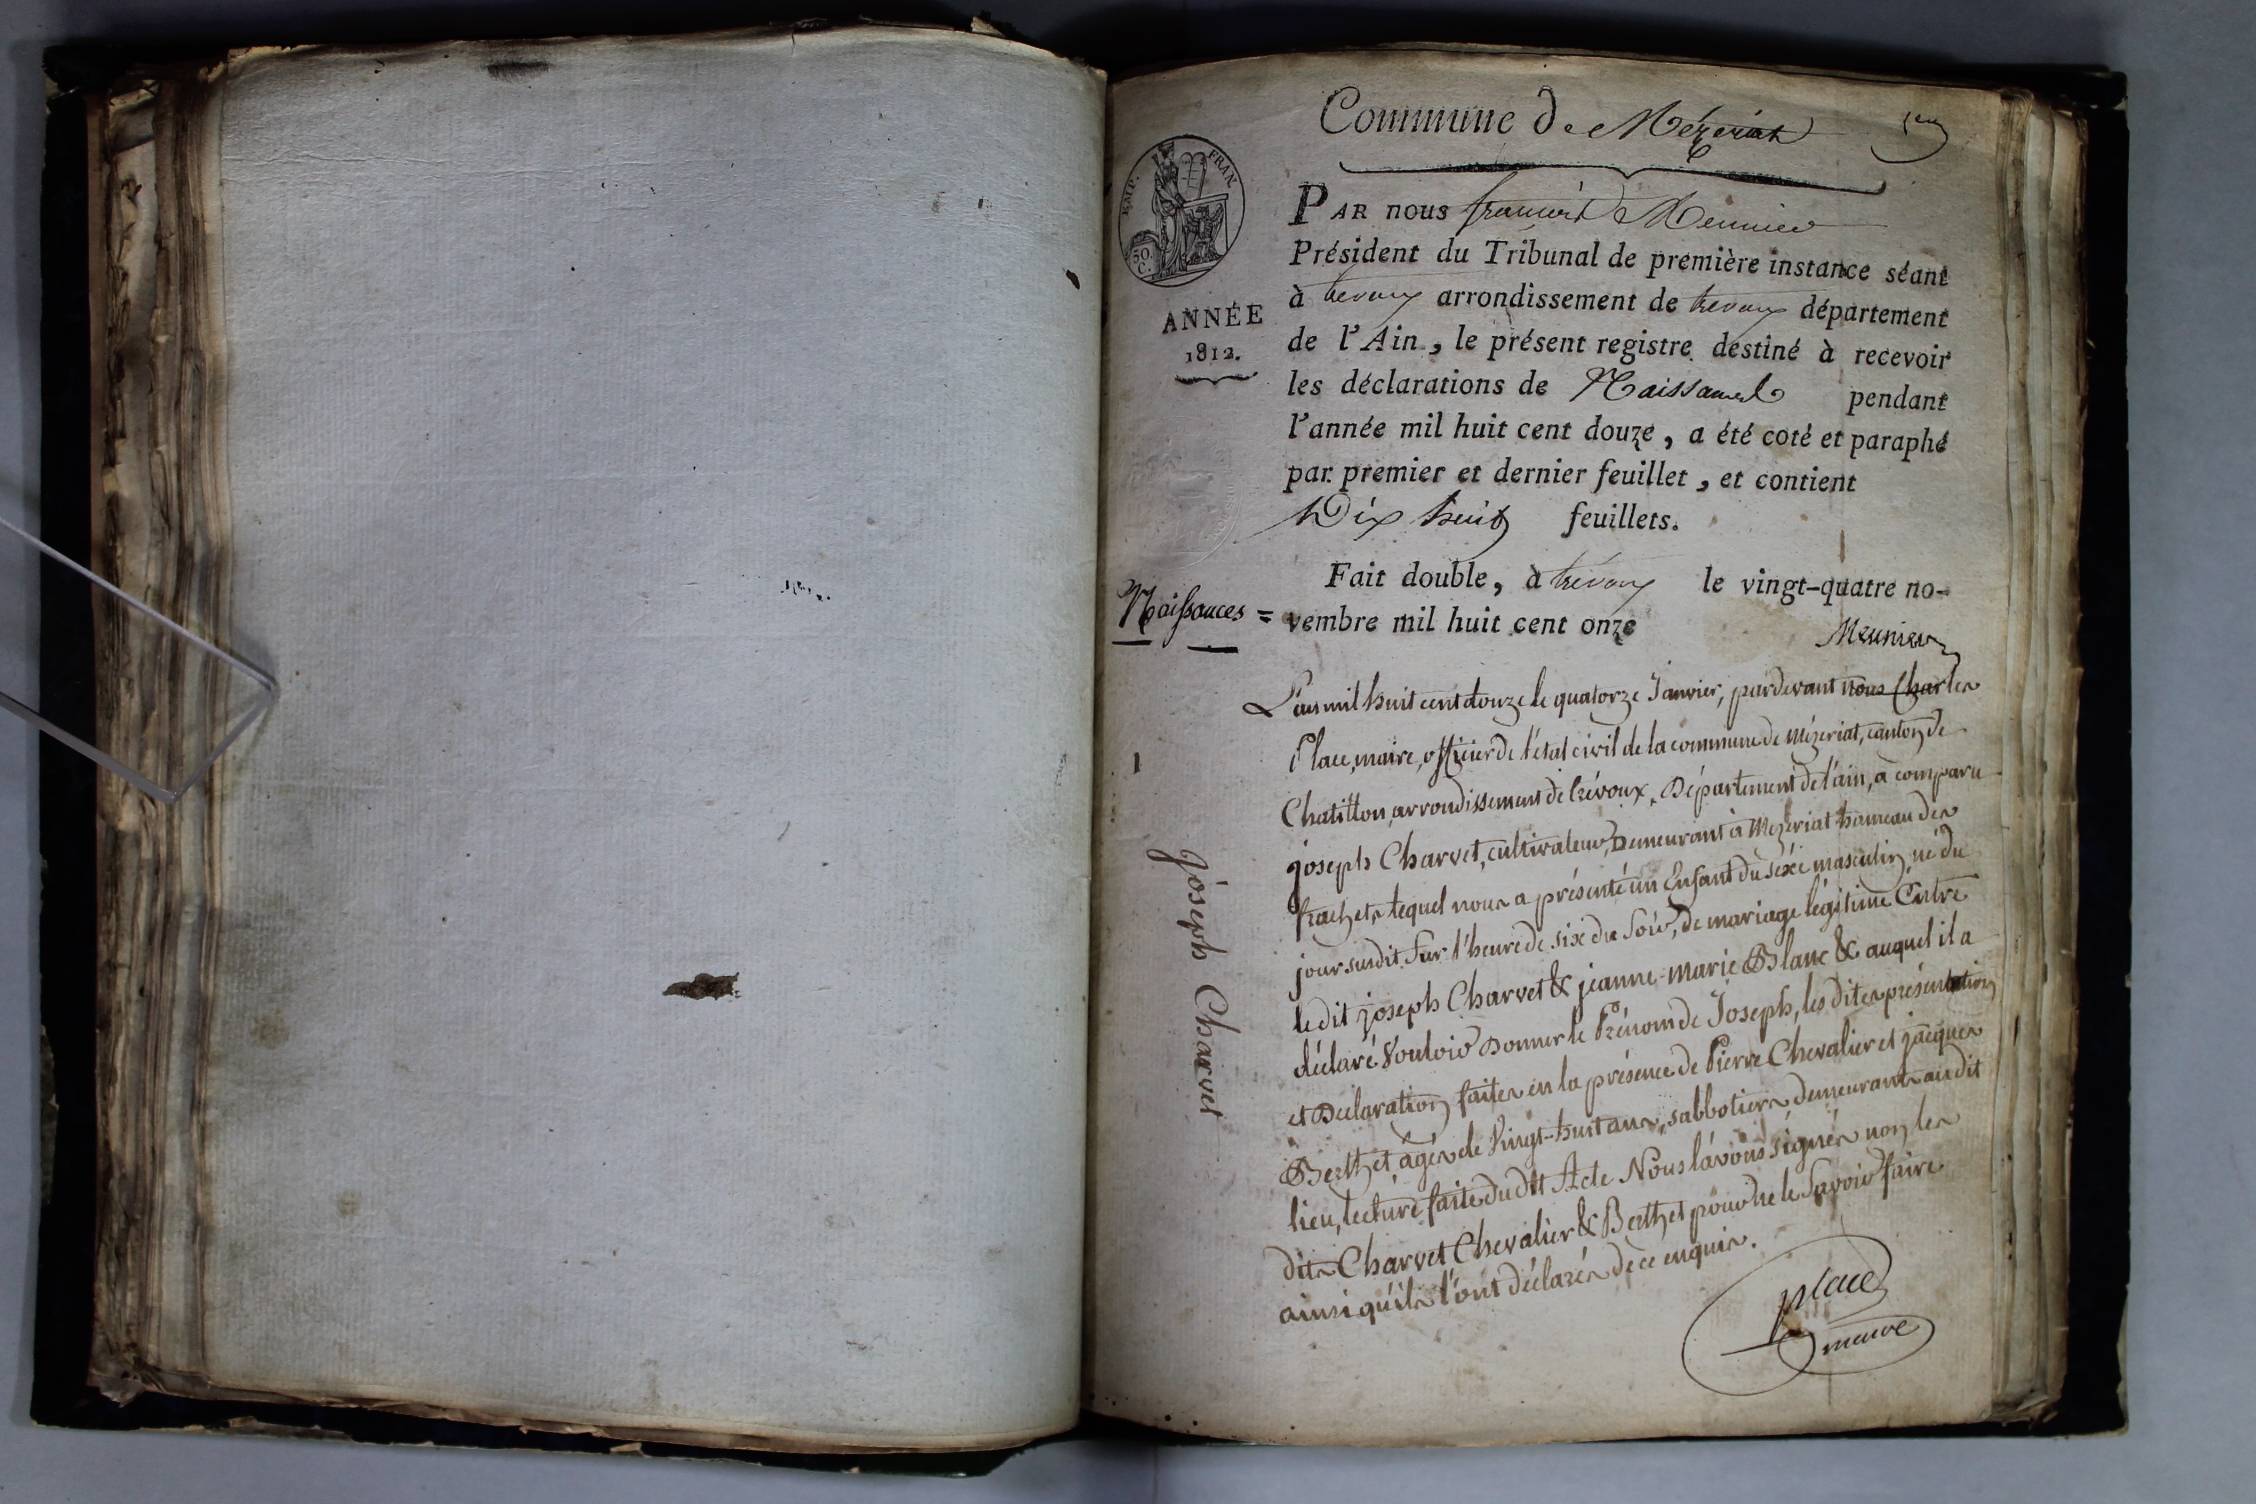 Commune de Mézériat
1er
EMP. FRAN.
50. C.
PAR nous françois Meunier
Président du Tribunal de première instance séant
à trevoux arrondissement de trevoux département
de l'Ain, le présent registre destiné à recevoir
les déclarations de Naissances pendant
l'année mil huit cent douze, a été coté et paraphé
par premier et dernier feuillet, et contient
Dix huit feuillets.
ANNÉE
1812.
Fait double, à trévoux le vingt-quatre no-
vembre mil huit cent onze
Meunier
Naissances =
L'an mil huit cent douze le quatorze Janvier, pardevant nous Charles
Place, maire, officier de l'état civil de la commune de Mézeriat, canton de
Chatillon, arrondissement de trévoux, Département de l'ain, a comparu
joseph Charvet, cultivateur, Demeurant à Mezeriat hameau des
frachets, lequel nous a présenté un Enfant du séxe masculin, né du
jour susdit sur l'heure de six du soir, de mariage légitime Entre
le dit joseph Charvet & jeanne-marie Blanc & auquel il a
déclaré Vouloir Donner le Prénom de Joseph, les dites présentation
et Déclaration faites en la présence de Pierre Chevalier et jacques
Berthet, âgés de Vingt-huit ans, sabbotiers demeurants au dit
lieu, lecture faite du dit Acte Nous l'avons signés non les
dits Charvet Chevalier & Berthet pour ne le Savoir faire
ainsi qu'ils l'ont déclarés de ce enquis.
place
maire
1
Joseph Charvet